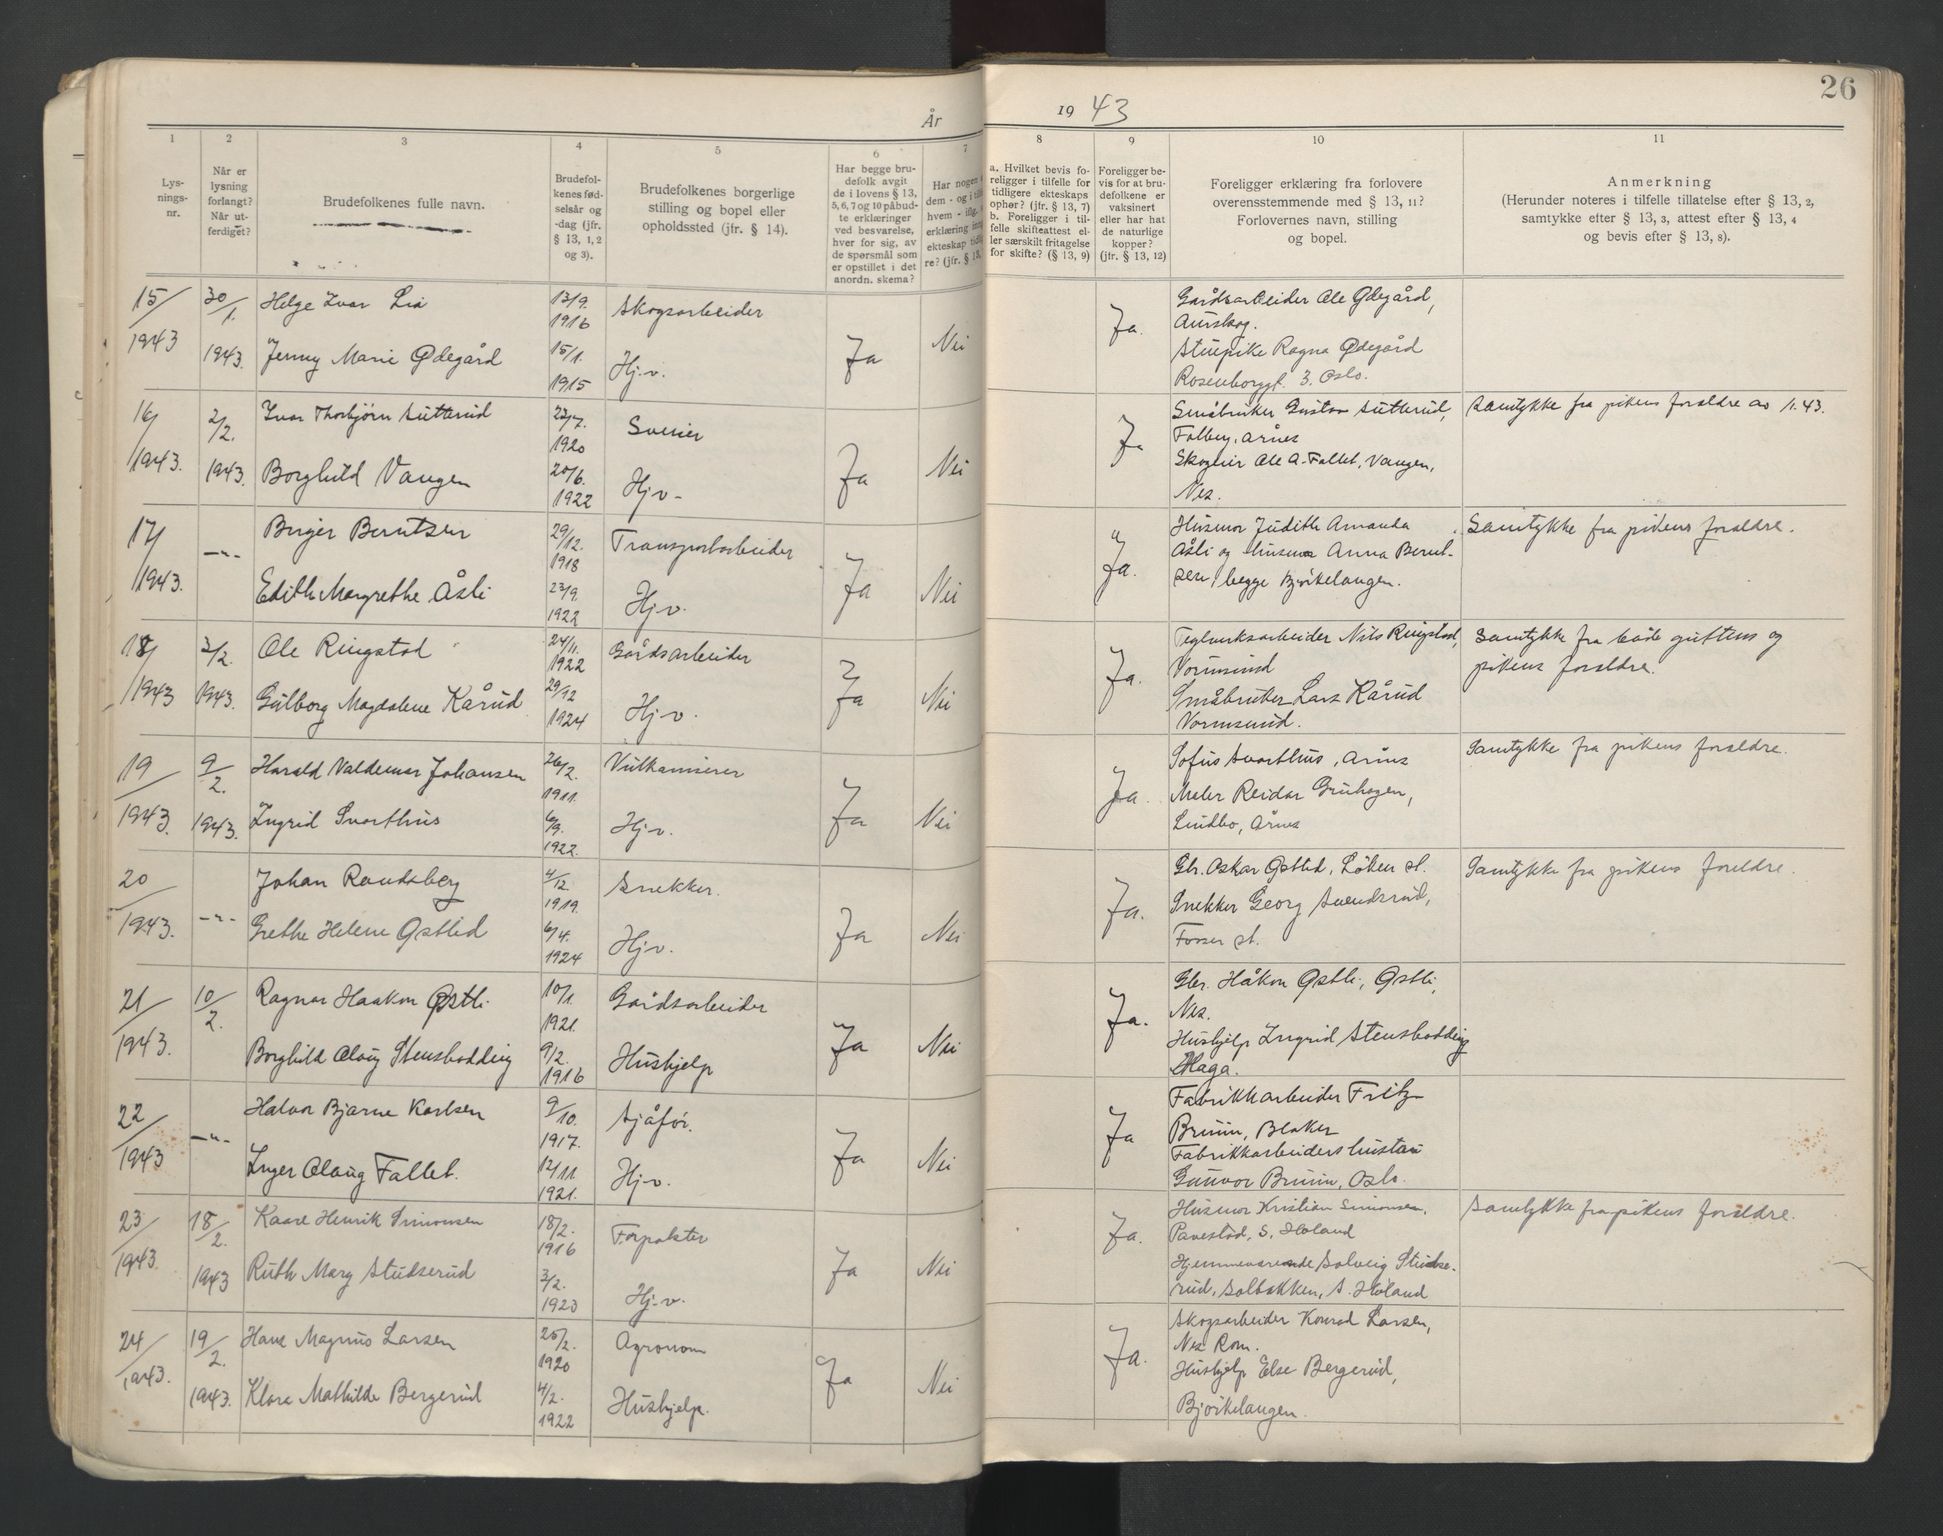 År 1943
26
1 2 3 4 5 6 7 8 9 10 11
Lys-
nings-
nr.
Når er
lysning
forlangt?
Når ut-
ferdiget?
Brudefolkenes fulle navn.
Brudefol-
kenes fød-
selsår og
-dag (jfr.
§ 13, 1, 2
og 3).
Brudefolkenes borgerlige
stilling og bopel eller
opholdssted (jfr. § 14).
Har begge bru-
defolk avgit
de i lovens § 13,
5, 6, 7 og 10 påbud-
te erklæringer
ved besvarelse,
hver for sig, av
de spørsmål som
er opstillet i det
anordn. skema?
Har nogen
dem - og i til
hvem - iflg.
erklæring inng
ekteskap tidli
re? (jfr. § 13,
a. Hvilket bevis fo-
religger i tilfelle for
tidligere ekteskaps
ophør? (jfr. § 13, 7)
b. Foreligger i til-
felle skifteattest el-
ler særskilt fritagelse
for skifte? (§ 13, 9)
Foreligger be-
vis for at bru-
defolkene er
vaksinert
eller har hat
de naturlige
kopper?
(jfr. § 13, 12)
Foreligger erklæring fra forlovere
overensstemmende med § 13, 11?
Forlovernes navn, stilling
og bopel.
Anmerkning
(Herunder noteres i tilfelle tillatelse efter § 13, 2,
samtykke efter § 13, 3, attest efter § 13, 4
og bevis efter § 13, 8).
15/1943 30/1. 1943. Helge Ivar Lia 13/9. 1916 Skogsarbeider
Jenny Marie Ødegård 15/1. 1915 Hj.v. Ja Nei
Ja. Gårdsarbeider Ole Ødegård,
Aurskog.
Stuepike Ragna Ødegård
Rosenborggt. 3. Oslo.
16/1943. 2/2. 1943. Ivar Thorbjørn Sutterud 23/7. 1920 Sveiser
Borghild Vangen 20/6. 1922 Hj.v- Ja Nei
Ja Småbruker Gustav Sutterud,
Folberg, Årnes
Skogeier Ole A. Fallet, Vangen,
Nes.
Samtykke fra pikens foreldre av /1. 43.
17/1943. -"- Birger Berntsen 29/12. 1918 Transportarbeider
Edith Margrethe Åsli 23/9. 1922 Hj.v. Ja Nei
Ja. Husmor Judith Amanda
Åsli og husmor Anna Bernt-
sen, begge Bjørkelangen.
Samtykke fra pikens foreldre.
18/1943 3/2. 1943. Ole Ringstad 24/11. 1922 Gårdsarbeider
Gulborg Magdalene Kårud 29/12 1924 Hj.v. Ja Nei
Ja. Teglverksarbeider Nils Ringstad,
Vormsund
Småbruker Lars Kårud
Vormsund.
Samtykke fra både guttens og
pikens foreldre.
19/1943. 9/2. 1943. Harald Valdemar Johansen 26/2. 1911. Vulkaniserer
Ingrid Svarthus 6/9. 1922. Hj.v. Ja Nei
Ja. Sofus Svarthus, Årnes
Maler Reidar Gruhagen,
Lindbo, Årnes
Samtykke fra pikens foreldre.
20/1943. -"- Johan Randsberg 4/12. 1919. Snekker.
Grethe Helene Østlid 6/4. 1924 Hj.v. Ja Nei
Ja. Gbr. Oskar Østlid, Løken st.
Snekker Georg Svendsrud,
Fosser st.
Samtykke fra pikens foreldre.
21/1943. 10/2. Ragnar Haakon Østli 10/1. 1921. Gårdsarbeider
Borghild Olaug Stensbodding 9/2. 1916 Hushjelp Ja Nei
Ja. Gbr. Håkon Østli, Østli,
Nes.
Hushjelp Ingrid Stensbodding
Haga.
22/1943 -"- Halvor Bjarne Karlsen 9/10. 1917. Sjåfør.
Inger Olaug Fallet. 12/11. 1921. Hj.v. Ja Nei
Ja Fabrikkarbeider Fritz
Bruun, Blaker
Fabrikkarbeiders hustru
Gunvor Bruun, Oslo.
23/1943. 18/2. 1943 Kaare Henrik Simonsen 18/2. 1916 Forpakter
Ruth Mary Studserud 3/2. 1923 Hj.v. Ja Nei
Ja. Husmor Kristian Simonsen,
Pavestad, S. Høland
Hjemmeværende Solveig Studse-
rud, Solbakken, S. Høland
Samtykke fra pikens foreldre.
24/1943. 19/2. 1943. Hans Magnus Larsen 25/2. 1920 Agronom
Klara Mathilde Bergerud 4/2. 1922 Hushjelp. Ja Nei
Ja. Skogsarbeider Konrad Larsen,
Nes Rom.
Hushjelp Else Bergerud,
Bjørkelangen.